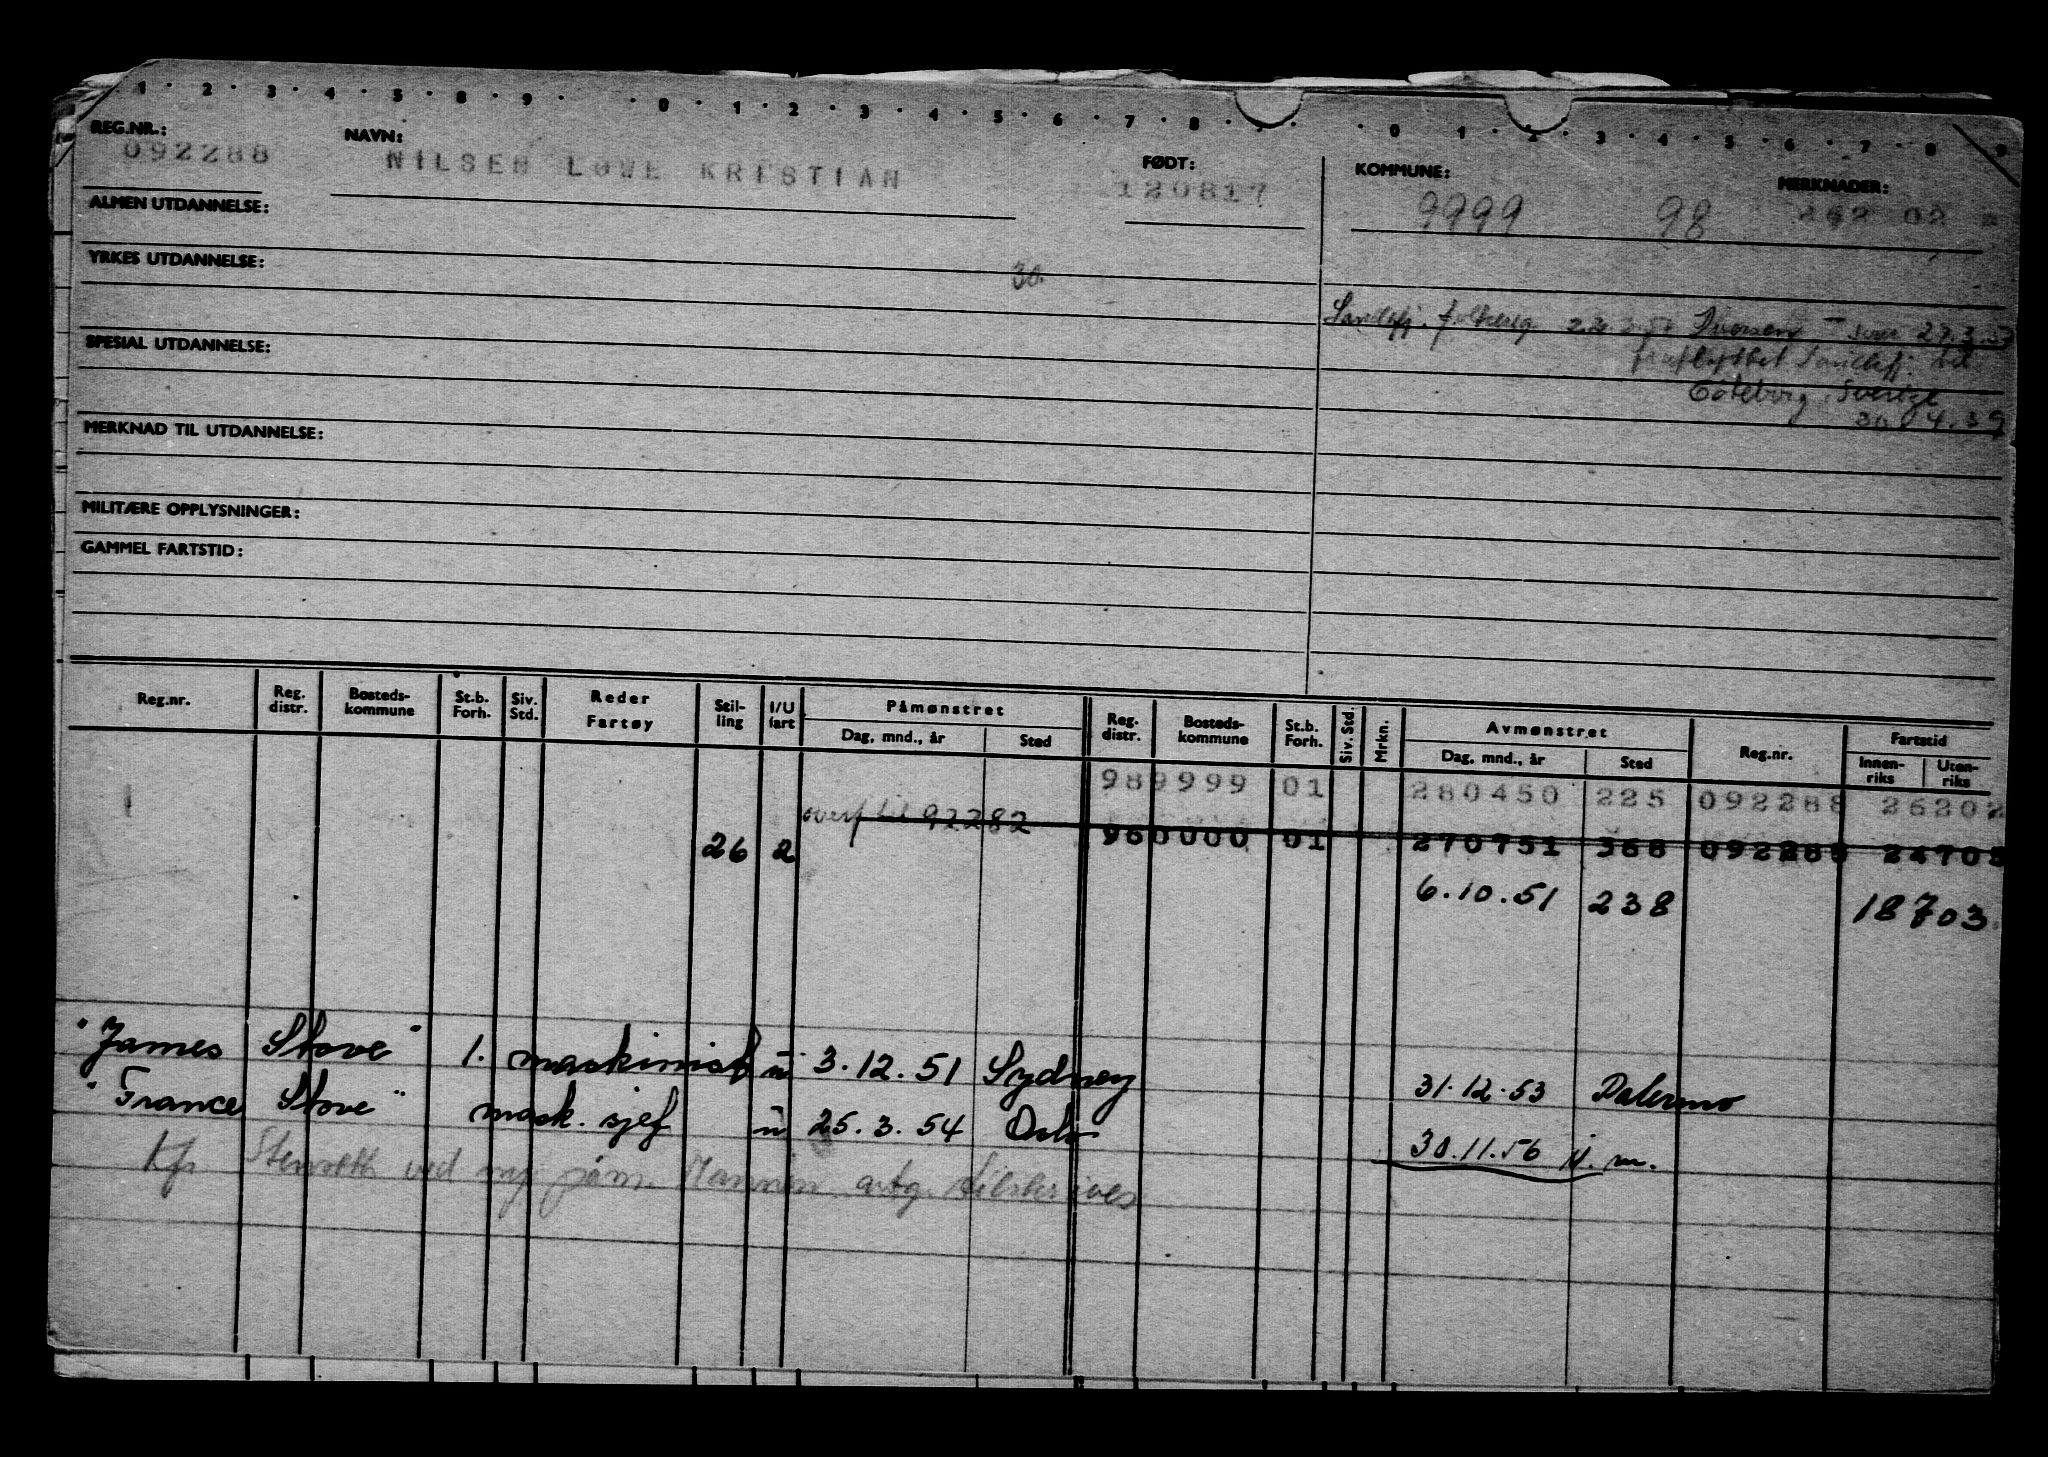 1 · 2 · 3 · 4 · 5 · 8 · 9 · · 0 · 1 · 2 · 3 · 4 · 5 · 6 · 7 · 8 · · · 0 1 · 2 · 3 · 4 · 5 · 6 · 7 · 8 · 9
REG.NR.: NAVN: FØDT: KOMMUNE: MERKNADER:
092288 NILSEN LOWE KRISTIAN 120817 9999 98 262 02
ALMEN UTDANNELSE:
YRKES UTDANNELSE: 30.
Sandefj. folkereg 27.3.53
SPESIAL UTDANNELSE: Sandefj. til
Göteborg, Sverige
30.4.39
MERKNAD TIL UTDANNELSE:
MILITÆRE OPPLYSNINGER:
GAMMEL FARTSTID:
Reg.nr. Reg. distr. Bosteds-kommune St.b. Forh. Siv. Std. Reder Fartøy Stil-ling I/U fart Påmønstret Reg. distr. Bosteds-kommune St.b. Forh. Siv. Std. Mrkn. Avmønstret Reg.nr. Fartstid
Dag, mnd., år Sted Dag, mnd., år Sted Innen-riks Uten-riks
989999 01 280450 225 092288 26202
26 2 overf til 92282 960000 01 270751 368 092288 24703
6.10.51 238 18703
"James Stove" 1. maskinist u 3.12.51 Sydney 31.12.53 Palermo
"France Stove" mask. sjef u 25.3.54 Oslo 30.11.56 N. m.
Kfr. ved ny påm.